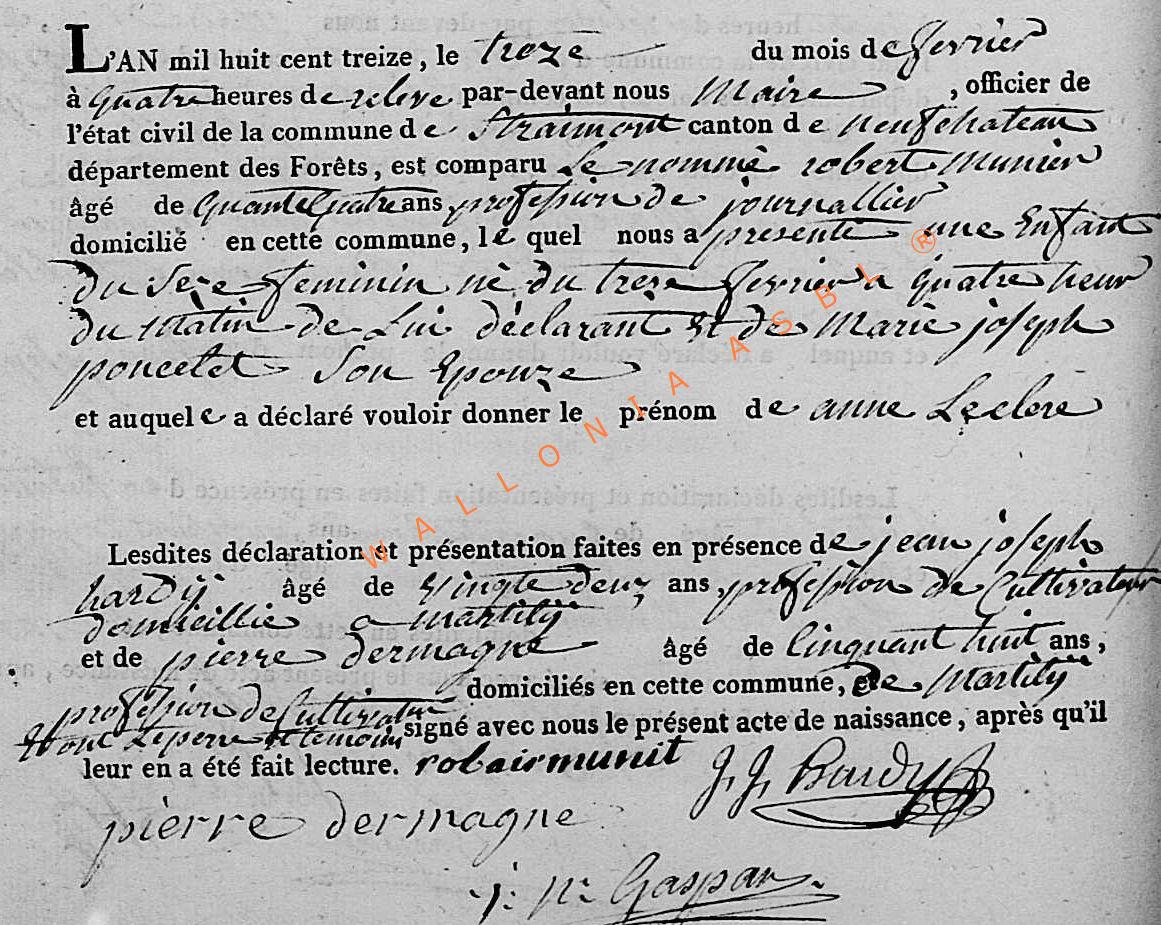 L'AN mil huit cent treize, le troze du mois de fevrier
à quatre heures de releve par-devant nous Maire , officier de
l'état civil de la commune de Straimont canton de neufchateau
département des Forêts, est comparu Le nommé robert munier
âgé de quante quatre ans, profession de journallier
domicilié en cette commune, le quel nous a presenté une Enfant
du Sexe feminin né du treze fevrier a quatre heur
du Matin de Lui déclarant Et de Marie joseph
poncelet Son Epouze
et auquel e a déclaré vouloir donner le prénom de anne Leclere
Lesdites déclaration et présentation faites en présence de jean joseph
hardÿ âgé de vingte deux ans, profession de Cultivateur
domicillié a martilÿ
et de pierre dermagne âgé de Cinquant huit ans,
profession de Cultivateur domiciliés en cette commune, de Martilÿ
Et ont Le pere et temoins signé avec nous le présent acte de naissance, après qu'il
leur en a été fait lecture. robairmunit J. J. Hardy
pierre dermagne
Gaspar
WALLONIA ASBL ®